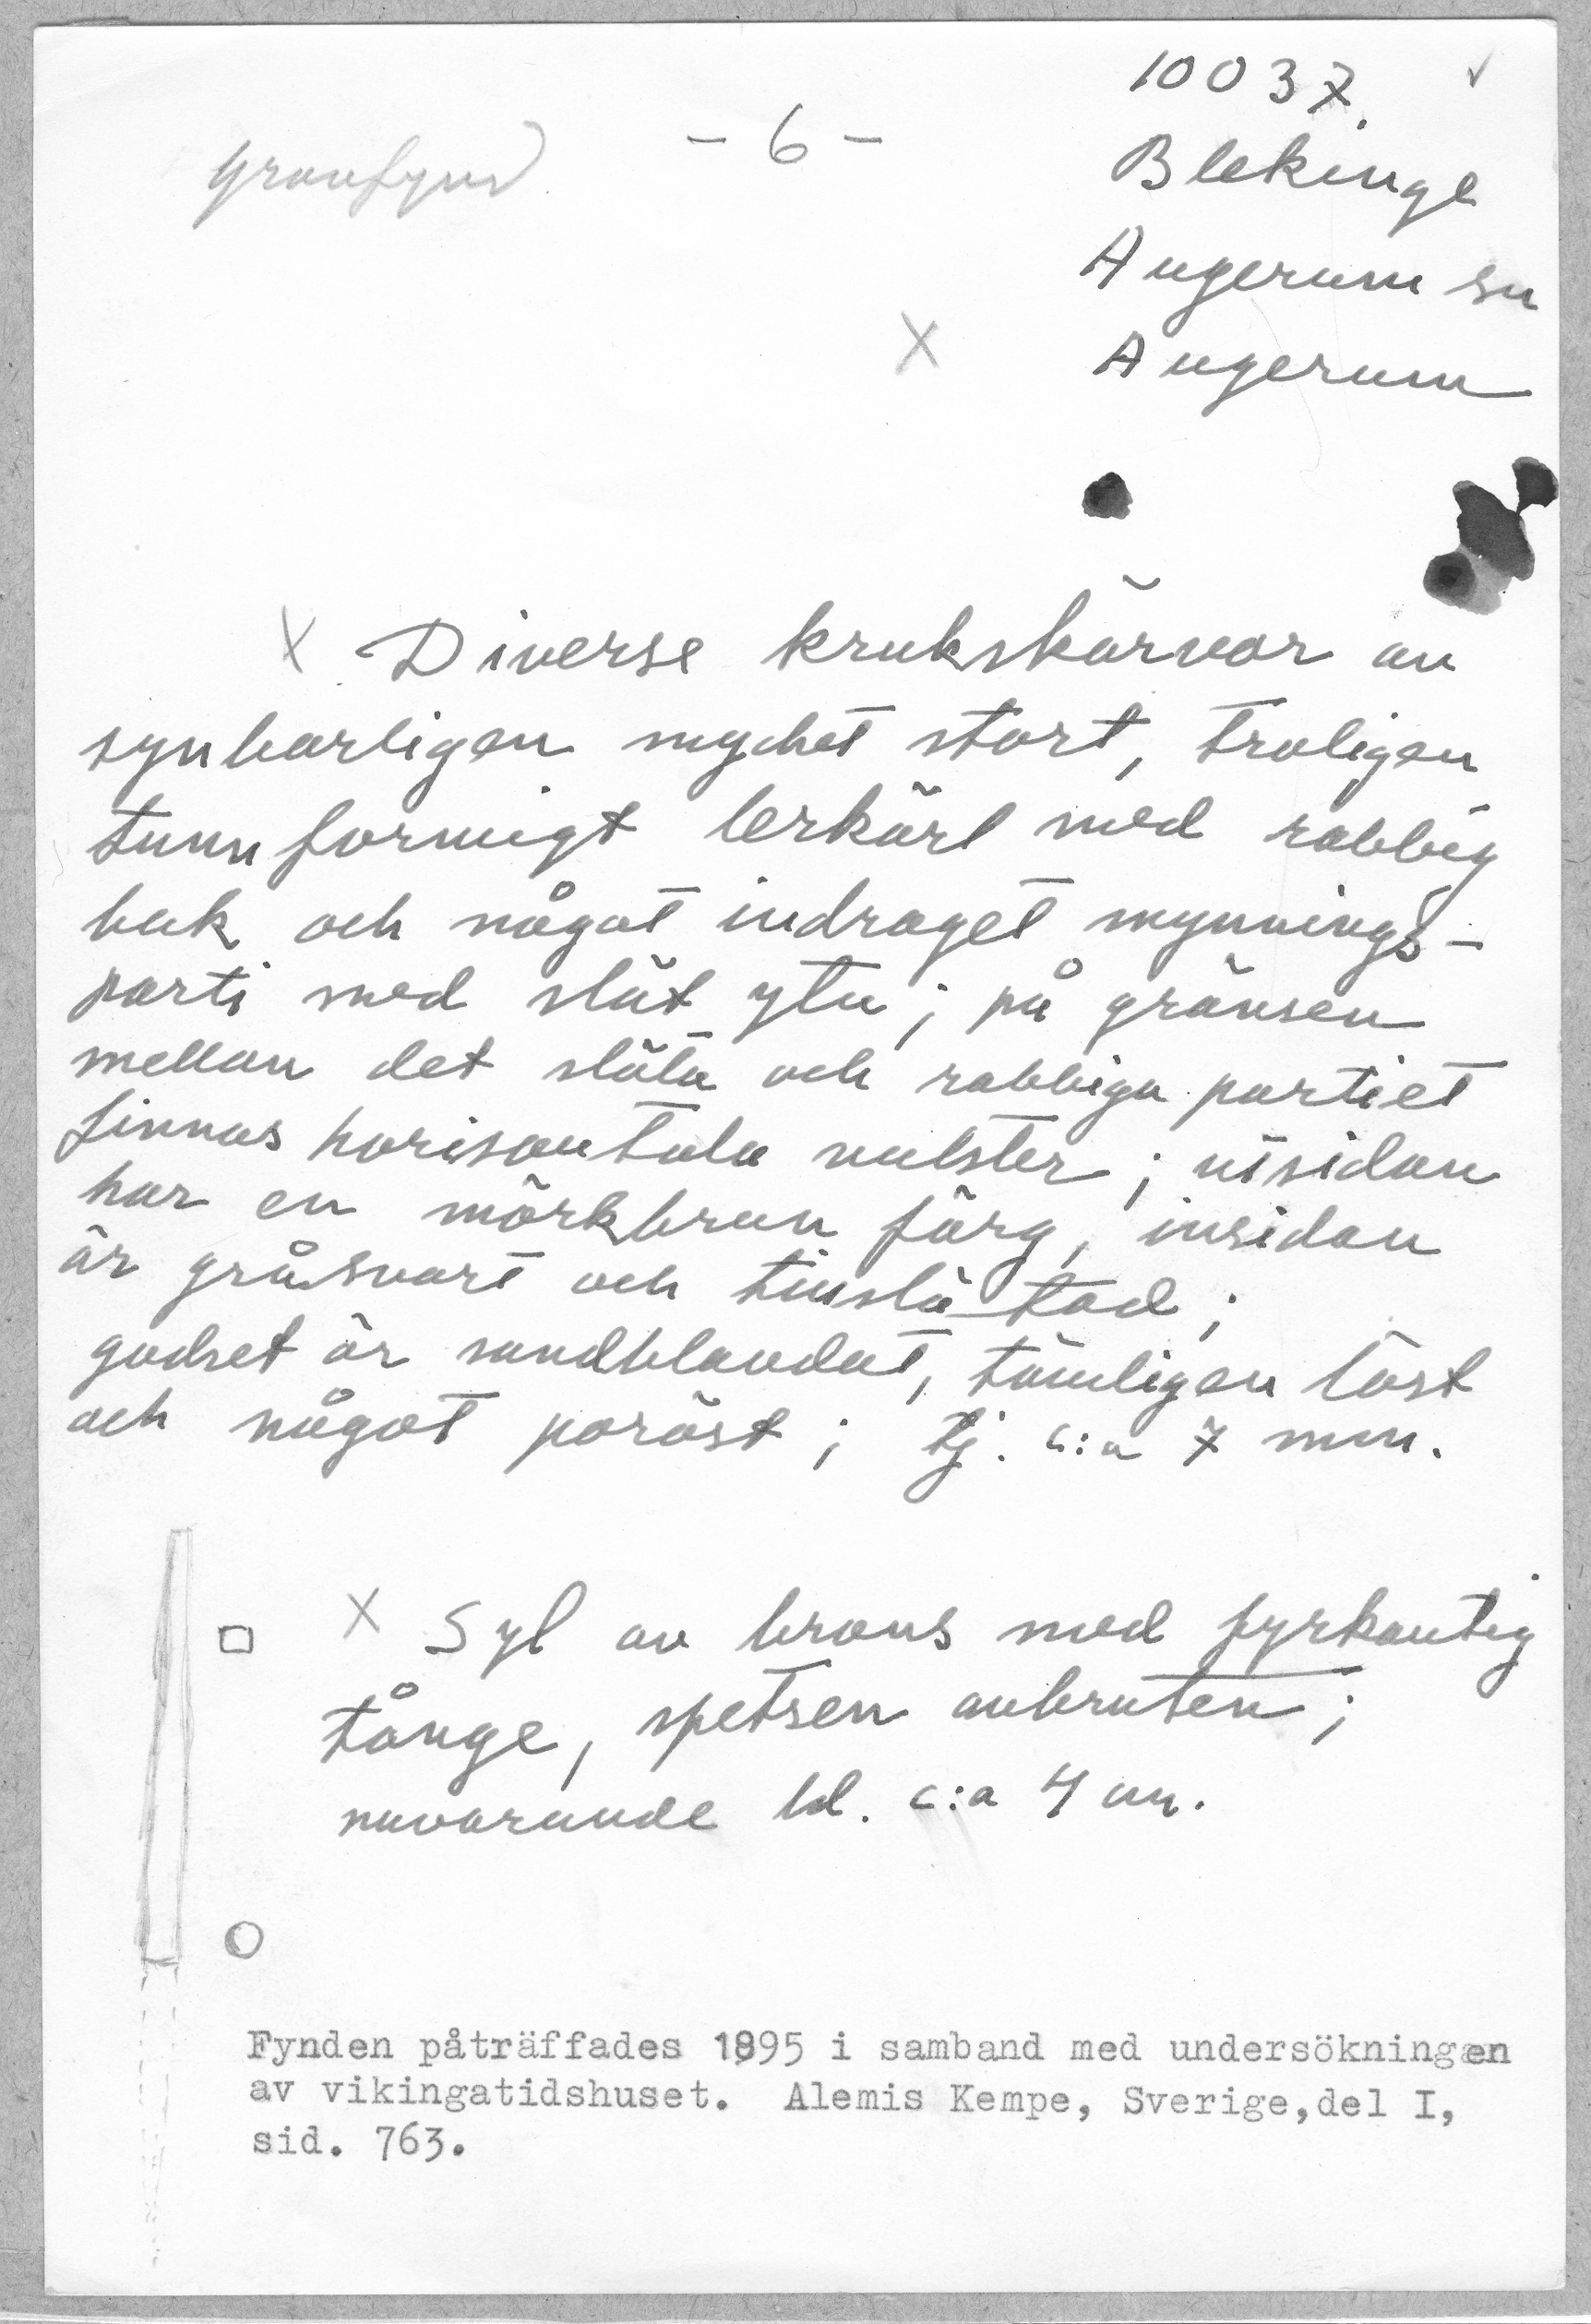 10037.
- 6 -
Gravfynd
Blekinge
Augerum sn
Augerum
X
X Diverse krukskärvor av
synbarligen mycket stort, troligen
tunnformigt lerkärl med rabbig
buk och något indraget mynnings-
parti med slät yta; på gränsen
mellan det släta och rabbiga partiet
finnas horisontala vulster; utsidan
har en mörkbrun färg, insidan
är gråsvart och finslätad;
godset är sandblandat, tämligen löst
och något poröst; tj. c:a 7 mm.
X Syl av brons med fyrkantig
tånge, spetsen avbruten;
nuvarande ld. c:a 4 cm.
Fynden påträffades 1895 i samband med undersökningen
av vikingatidshuset. Alemis Kempe, Sverige,del I,
sid. 763.